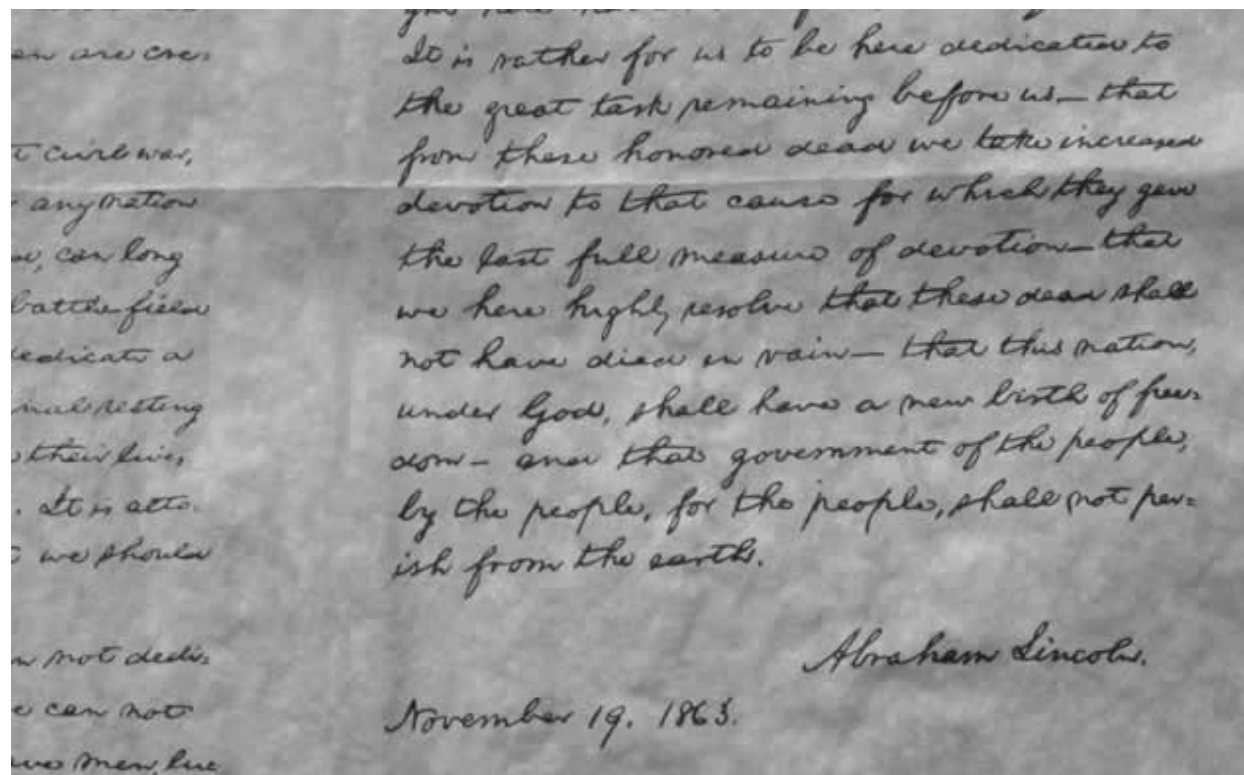 en are cre=
civil war,
any nation
can long
battle field
edicate a
nal resting
their lives,
. It is alto=
we should
not dedi=
can not
men, live
It is rather for us to be here dedicated to
the great task remaining before us— that
from these honored dead we take increased
devotion to that cause for which they gave
the last full measure of devotion— that
we here highly resolve that these dead shall
not have died in vain— that this nation,
under God, shall have a new birth of free=
dom— and that government of the people,
by the people, for the people, shall not per=
ish from the earth.
Abraham Lincoln.
November 19. 1863.